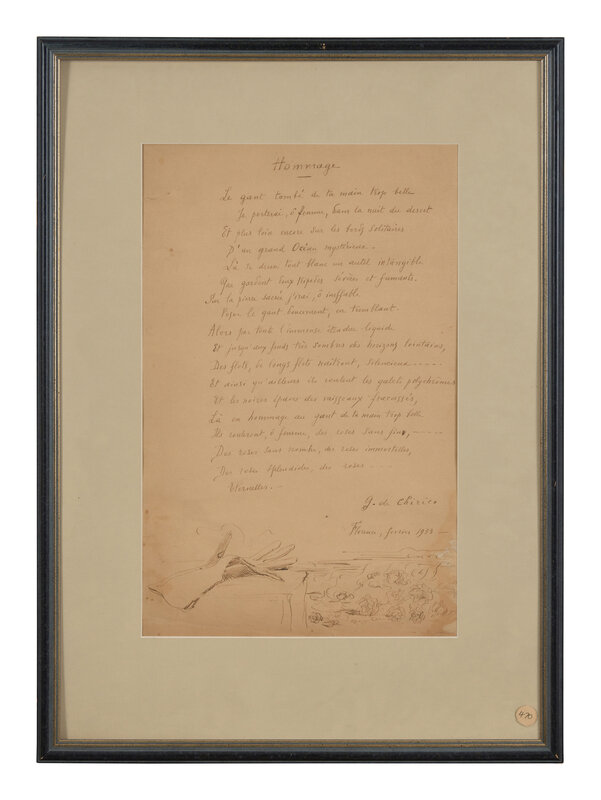 Hommage
Le gant tombé de ta main trop belle
Je porterai, ô femme, dans la nuit du désert
Et plus loin encore sur les bords solitaires
D'un grand Océan mystérieux.
Là se dresse tout blanc un autel intangible
Que gardent deux trépieds sévères et fumants.
Sur la pierre sacrée j'irai, ô ineffable
Poser le gant doucement, en tremblant.
Alors par toute l'immense étendue liquide
Et jusqu'aux fonds très sombres des horizons lointains,
Des flots, de longs flots naîtront, silencieux ----
Et ainsi qu'ailleurs ils roulent les galets polychromes
Et les noires épaves des vaisseaux fracassés,
Là en hommage au gant de ta main trop belle
Ils rouleront, ô femme, des roses sans fin, ----
Des roses sans nombre, des roses immortelles,
Des roses splendides, des roses ---
Éternelles. —
G. de Chirico
Florence, février 1933 —
470